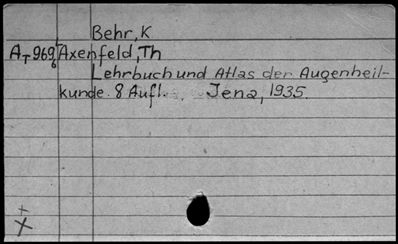 Behr, K
AT 969 Axenfeld, Th
6
Lehrbuch und Atlas der Augenheil-
kunde. 8 Aufl. Jena, 1935.
+
X